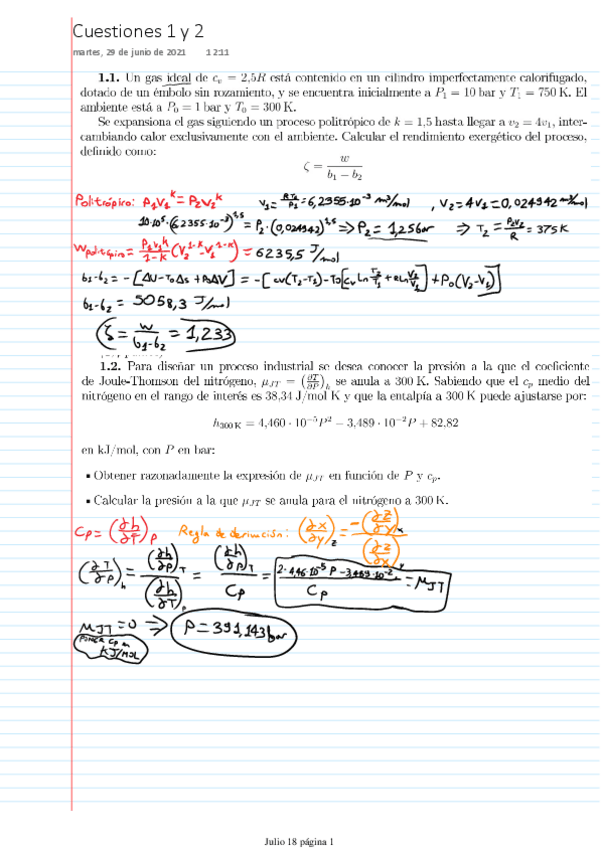 Cuestiones 1 y 2
martes, 29 de junio de 2021 12:11
1.1. Un gas ideal de cᵥ = 2,5R está contenido en un cilindro imperfectamente calorifugado,
dotado de un émbolo sin rozamiento, y se encuentra inicialmente a P₁ = 10 bar y T₁ = 750 K. El
ambiente está a P₀ = 1 bar y T₀ = 300 K.
Se expansiona el gas siguiendo un proceso politrópico de k = 1,5 hasta llegar a v₂ = 4v₁, inter-
cambiando calor exclusivamente con el ambiente. Calcular el rendimiento exergético del proceso,
definido como:
ζ = w / (b₁ − b₂)
Politrópico: P₁V₁ᵏ = P₂V₂ᵏ V₁ = RT₁/P₁ = 6,2355·10⁻³ m³/mol , V₂ = 4V₁ = 0,024942 m³/mol
10·10⁵·(6,2355·10⁻³)¹·⁵ = P₂·(0,024942)¹·⁵ ⇒ P₂ = 1,25 bar ⇒ T₂ = P₂V₂/R = 375 K
Wpolitrópico = P₁V₁ᵏ/(1-k) (V₂¹⁻ᵏ - V₁¹⁻ᵏ) = 6235,5 J/mol
b₁-b₂ = -[ΔU - T₀Δs + P₀ΔV] = -[cv(T₂-T₁) - T₀[cv ln T₂/T₁ + R ln V₂/V₁] + P₀(V₂-V₁)]
b₁-b₂ = 5058,3 J/mol
ζ = w/(b₁-b₂) = 1,233
1.2. Para diseñar un proceso industrial se desea conocer la presión a la que el coeficiente
de Joule-Thomson del nitrógeno, μJT = (∂T/∂P)ₕ se anula a 300 K. Sabiendo que el cₚ medio del
nitrógeno en el rango de interés es 38,34 J/mol K y que la entalpía a 300 K puede ajustarse por:
h₃₀₀ K = 4,460 · 10⁻⁵P² − 3,489 · 10⁻²P + 82,82
en kJ/mol, con P en bar:
▪ Obtener razonadamente la expresión de μJT en función de P y cₚ.
▪ Calcular la presión a la que μJT se anula para el nitrógeno a 300 K.
Cp = (∂h/∂T)P Regla de derivación: (∂x/∂y)z = -(∂z/∂y)x / (∂z/∂x)y
(∂T/∂P)h = (∂h/∂P)T / (∂h/∂T)P = (∂h/∂P)T / Cp = (2·4,46·10⁻⁵P - 3,489·10⁻²) / Cp = μJT
μJT = 0 ⇒ P = 391,143 bar
PONER Cp en
KJ/MOL
Julio 18 página 1